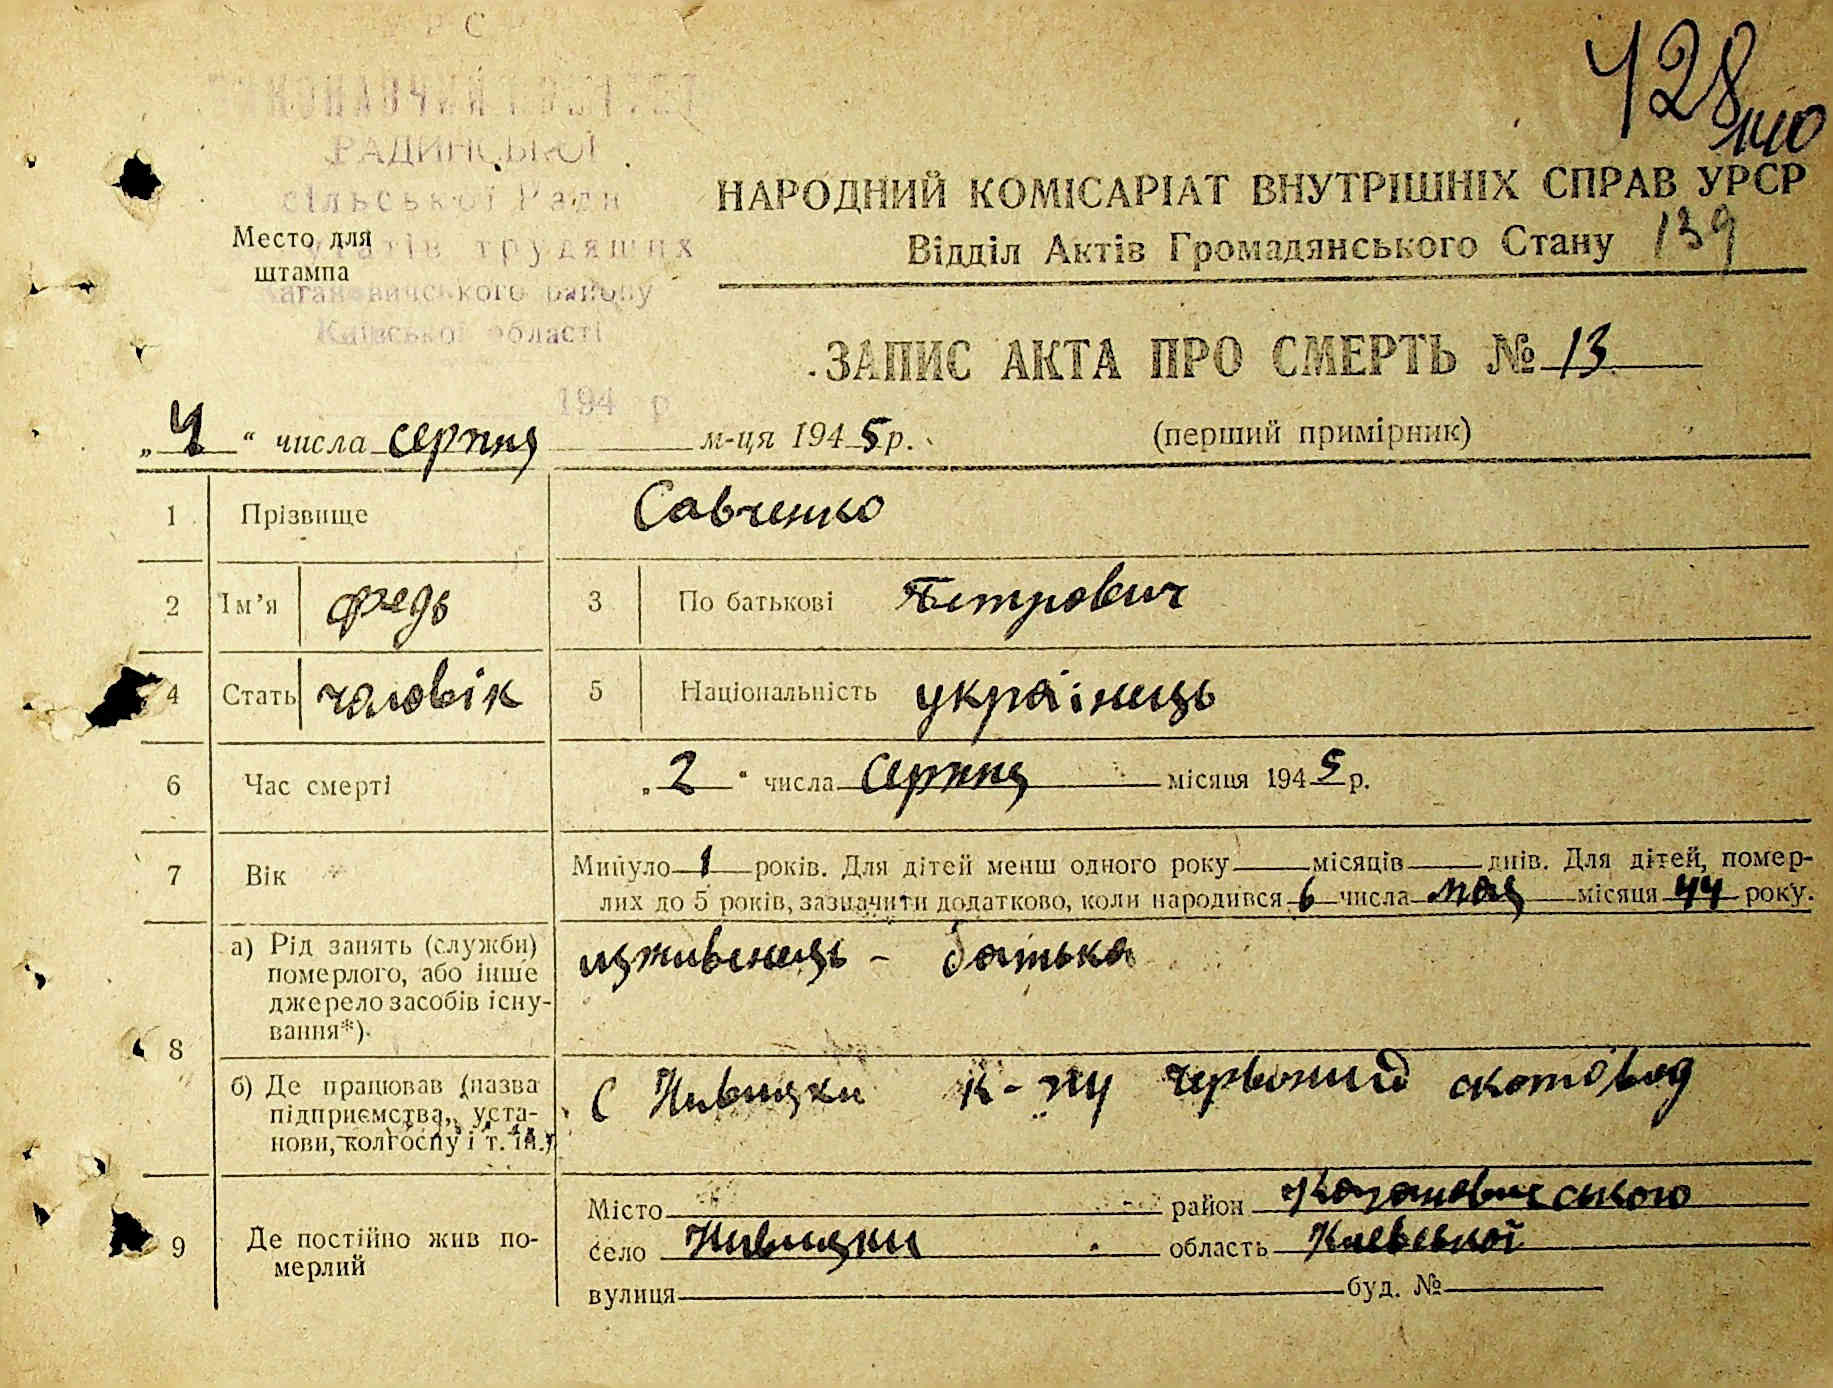 428
140
ВИКОНАВЧИЙ КОМІТЕТ
РАДИНСЬКОЇ
сільської Ради
НАРОДНИЙ КОМІСАРІАТ ВНУТРІШНІХ СПРАВ УРСР
Место для
штампа
утатів трудящих
Відділ Актів Громадянського Стану 139
Кагановичського району
Київської області
ЗАПИС АКТА ПРО СМЕРТЬ № 13
194 р
„4“ числа серпня м-ця 1945 р.
(перший примірник)
1 Прізвище Савченко
2 Ім'я Федь 3 По батькові Петрович
4 Стать чоловік 5 Національність українець
6 Час смерті „2“ числа Серпня місяця 1945 р.
7 Вік Минуло 1 років. Для дітей менш одного року місяців днів. Для дітей, помер-
лих до 5 років, зазначити додатково, коли народився 6 числа мая місяця 44 року.
8 а) Рід занять (служби)
померлого, або інше
джерело засобів існу-
вання*).
іждивенець - батька
б) Де працював (назва
підприємства, уста-
нови, колгоспу і т. ін.)
С Нивицки к-пу червоний скотовод
9 Де постійно жив по-
мерлий
Місто район Кагановичського
село Нивицки область Киевської
вулиця буд. №